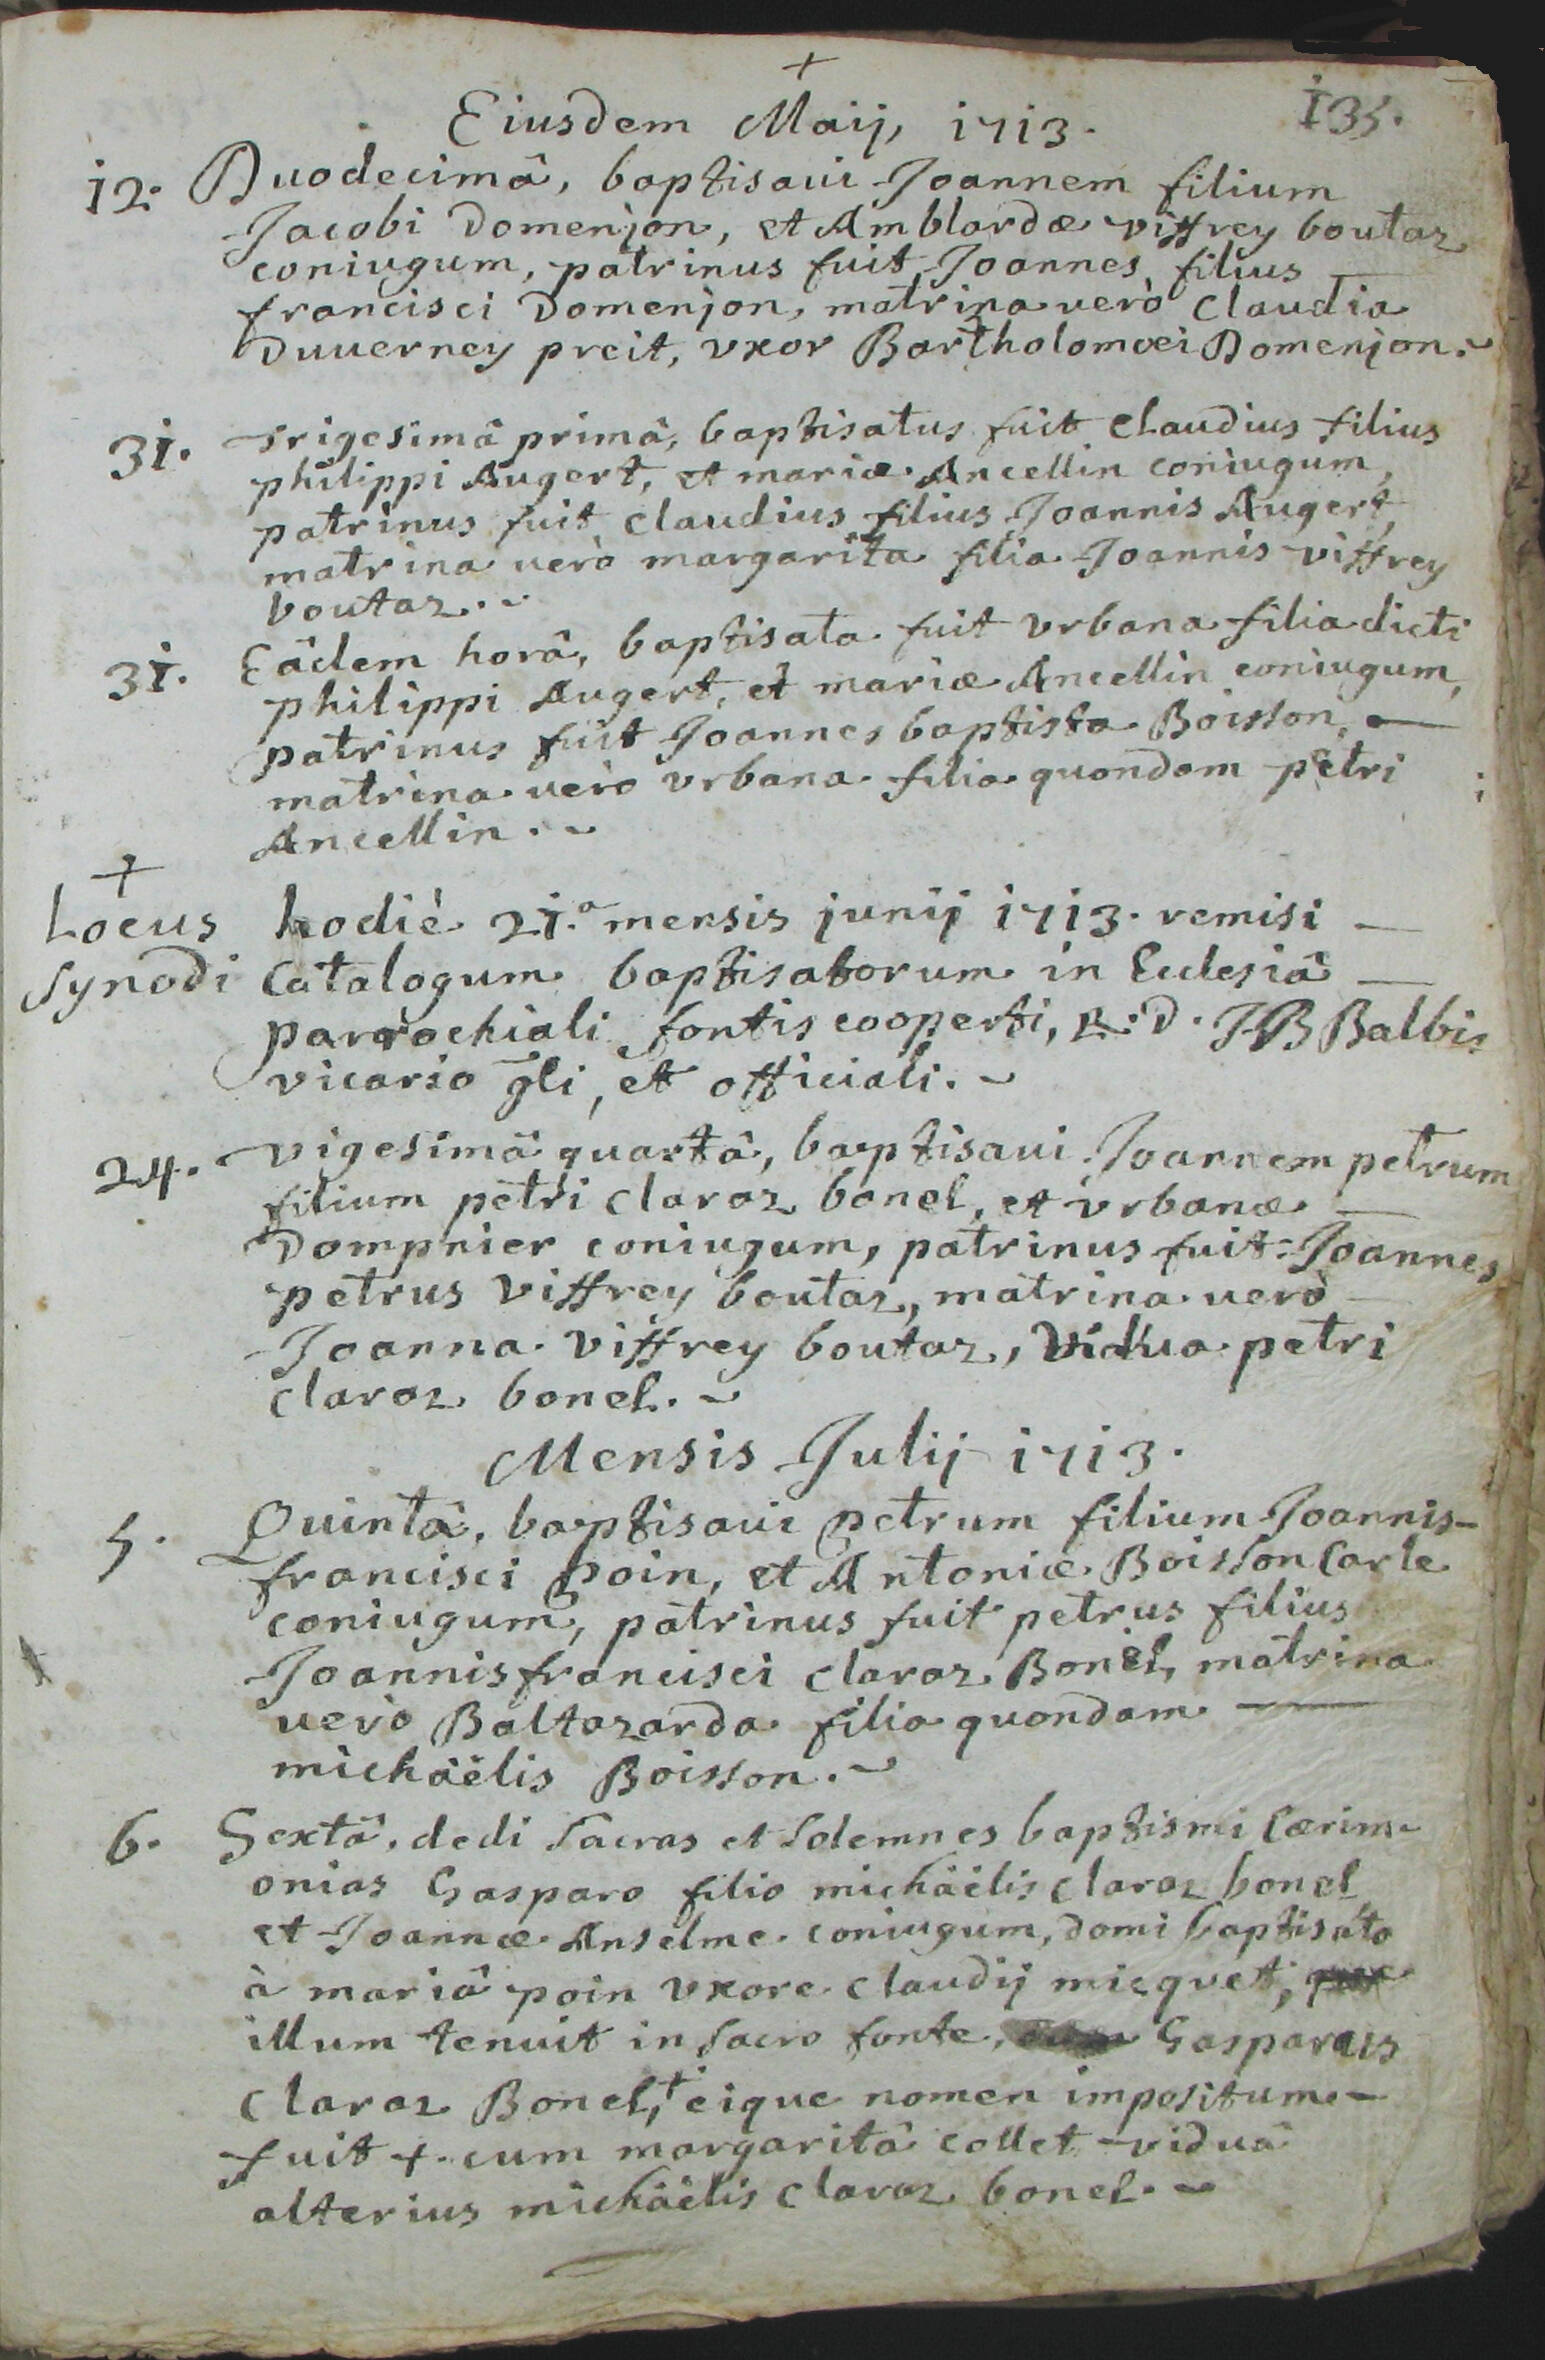 +
Eiusdem Maij, 1713. 135.
12. Duodecimâ, baptisaui Joannem filium
Jacobi Domenjon, et Amblardæ viffrey boutaz
coniugum, patrinus fuit Joannes filius —
francisci Domenjon, matrina uerò Claudia
Duuerney preit, vxor Bartholomœi Domenjon. ~
31. Trigesimâ primâ, baptisatus fuit Claudius filius
philippi Augert, et mariæ Ancellin coniugum,
patrinus fuit Claudius filius Joannis Augert,
matrina uerò margarita filia Joannis viffrey
boutaz. ~
31. Eâdem horâ, baptisata fuit vrbana filia dicti
philippi Augert, et mariæ Ancellin coniugum,
patrinus fuit Joannes baptista Boisson, —
matrina uerò vrbana filia quondam petri
Ancellin. ~
+
Locus hodiè 21.ª mensis junij 1713. remisi —
Synodi Catalogum baptisatorum in Ecclesiâ —
parrochiali fontis cooperti, R. D. JB Balbis
vicario gli, et officiali. ~
24. vigesimâ quartâ, baptisaui Joannem petrum
filium petri Claraz bonel, et vrbanæ —
Dompnier coniugum, patrinus fuit Joannes
petrus viffrey boutaz, matrina uerò —
Joanna viffrey boutaz, vidua petri
Claraz bonel. ~
Mensis Julij 1713.
5. Quintâ, baptisaui petrum filium Joannis-
francisci poin, et Antoniæ Boisson Carle
coniugum, patrinus fuit petrus filius
Joannisfrancisci Claraz Bonel, matrina
uerò Baltazarda filia quondam —
michäelis Boisson. ~
6. Sextâ, dedi sacras et solemnes baptismi Cærim-
onias Gasparo filio michäelis Claraz bonel
et Joannæ Anselme coniugum, domi baptisato
à mariâ poin vxore Claudij micquet,
illum tenuit in sacro fonte, Gasparus
Claraz Bonel,+ eique nomen impositum —
fuit +. cum margaritâ collet viduâ
alterius michäelis Claraz bonel. ~